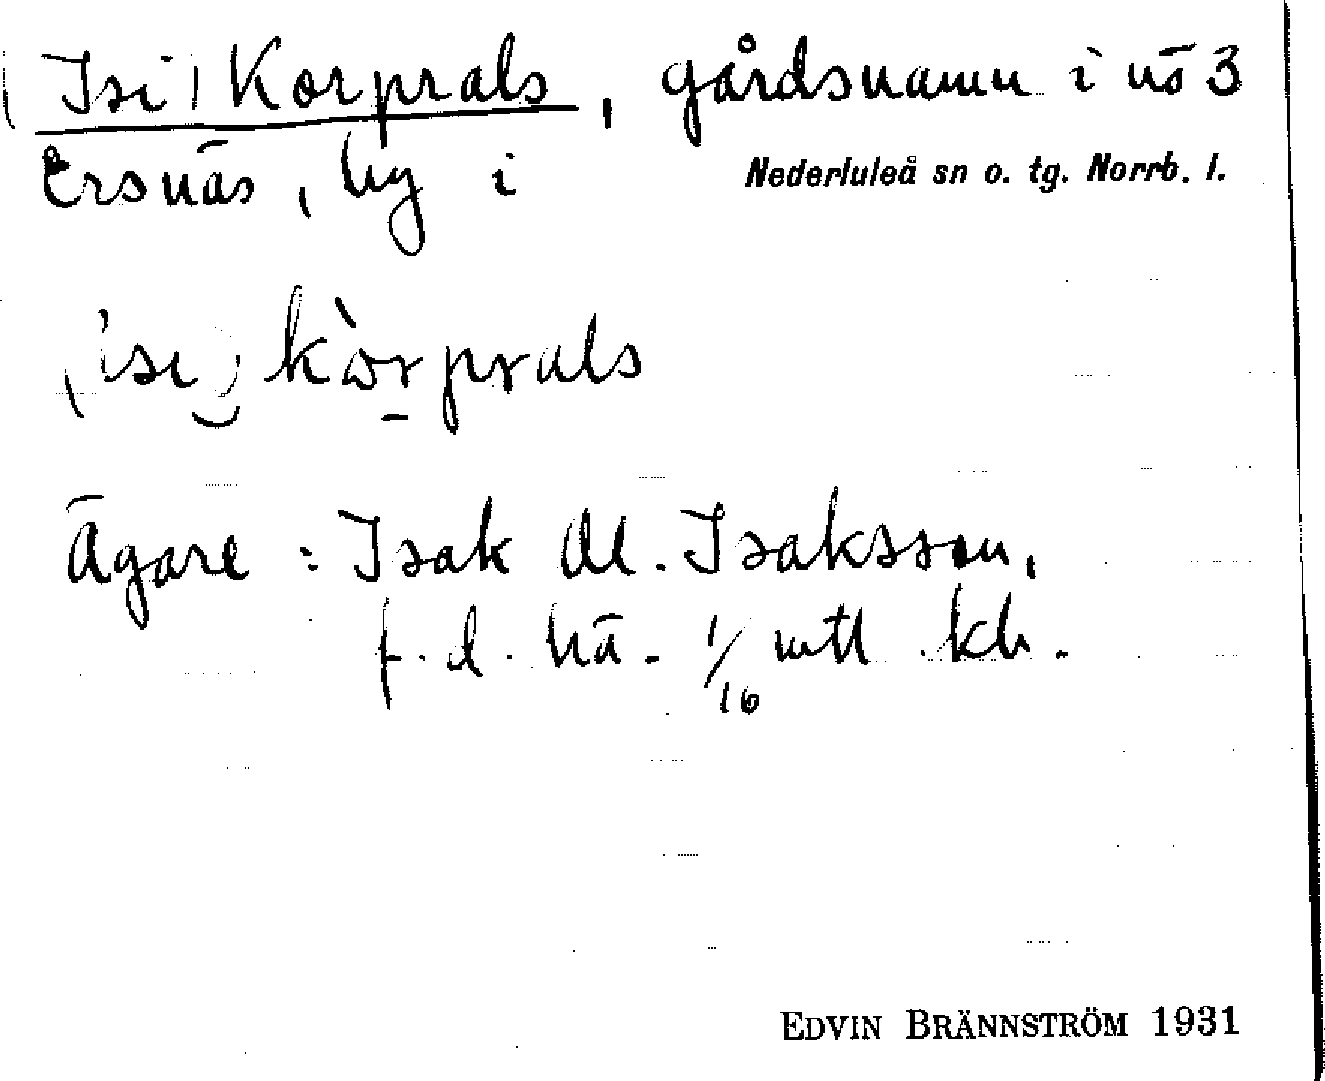 (Isi) Korprals, gårdsnamn i nö 3
Ersnäs, by i Nederluleå sn o. tg. Norrb. l.
(isi) kòrprals
Ägare : Isak Al. Isaksson,
f. d. hä. 1/16 mtl kh.
EDVIN BRÄNNSTRÖM 1931